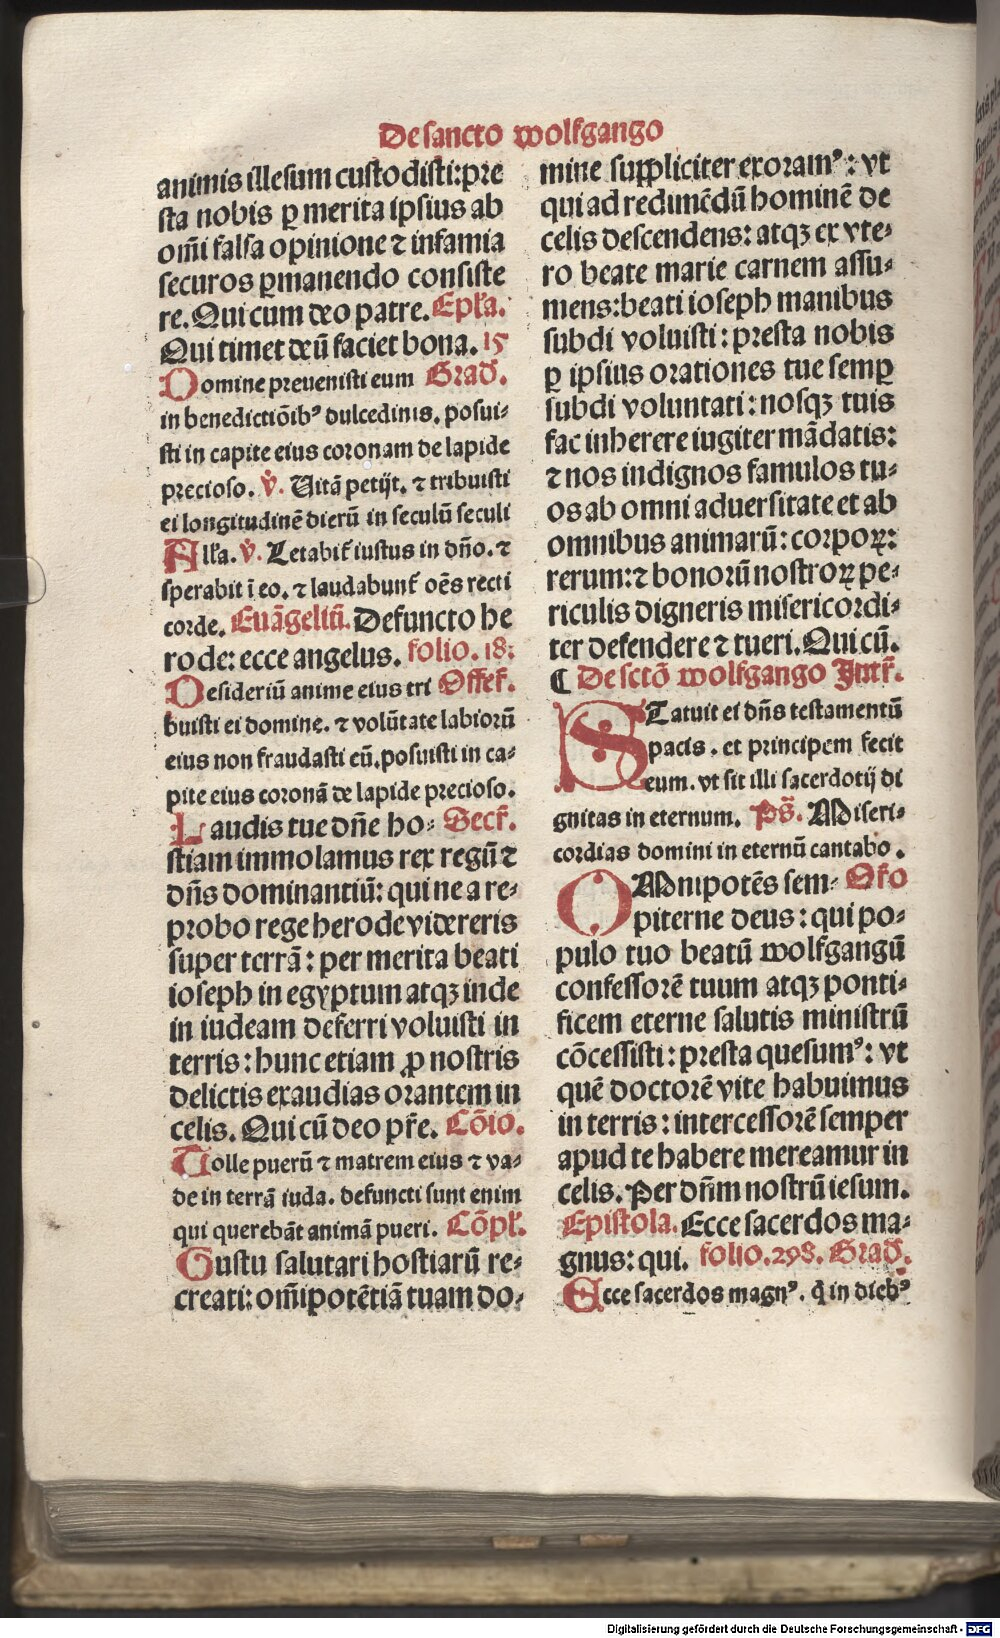 De sancto wolfgango
animis illesum custodisti: pre
sta nobis ꝑ merita ipsius ab
om̄i falsa opinione ⁊ infamia
securos ꝑmanendo consiste
re. Qui cum deo patre. Epl̄a.
Qui timet deū faciet bona. 15
Domine preuenisti eum Grad̄.
in benedictiōibꝰ dulcedinis. posui⸗
sti in capite eius coronam de lapide
precioso. v̄. Uitā petijt. ⁊ tribuisti
ei longitudinē dierū in seculū seculi
All̄a. v̄. Letabit̄ iustus in dn̄o. ⁊
sperabit ī eo. ⁊ laudabunt̄ oēs recti
corde. Euāgeliū. Defuncto he
rode: ecce angelus. folio. 18.
Desideriū anime eius tri Offer̄.
buisti ei domine. ⁊ volūtate labiorū
eius non fraudasti eū. posuisti in ca⸗
pite eius coronā de lapide precioso.
Laudis tue dn̄e ho⸗ Secr̄.
stiam immolamus rex regū ⁊
dn̄s dominantiū: qui ne a re⸗
probo rege herode videreris
super terrā: per merita beati
ioseph in egyptum atqꝫ inde
in iudeam deferri voluisti in
terris: hunc etiam ꝓ nostris
delictis exaudias orantem in
celis. Qui cū deo pr̄e. Cōio.
Tolle puerū ⁊ matrem eius ⁊ va⸗
de in terrā iuda. defuncti sunt enim
qui querebāt animā pueri. Cōpl̄.
Gustu salutari hostiarū re⸗
creati: om̄ipotētiā tuam do⸗
mine suppliciter exoramꝰ: vt
qui ad redimēdū hominē de
celis descendens: atqꝫ ex vte⸗
ro beate marie carnem assu⸗
mens: beati ioseph manibus
subdi voluisti: presta nobis
ꝑ ipsius orationes tue semꝑ
subdi voluntati: nosqꝫ tuis
fac inherere iugiter mādatis:
⁊ nos indignos famulos tu⸗
os ab omni aduersitate et ab
omnibus animarū: corpoꝝ:
rerum: ⁊ bonorū nostroꝝ pe⸗
riculis digneris misericordi⸗
ter defendere ⁊ tueri. Qui cū.
¶ De sctō wolfgango Intr̄.
STatuit ei dn̄s testamentū
pacis. et principem fecit
eum. vt sit illi sacerdotij di
gnitas in eternum. Ps̄. Miseri⸗
cordias domini in eternū cantabo.
OMnipotēs sem⸗ Or̄o
piterne deus: qui po⸗
pulo tuo beatū wolfgangū
confessorē tuum atqꝫ ponti⸗
ficem eterne salutis ministrū
cōcessisti: presta quesumꝰ: vt
quē doctorē vite habuimus
in terris: intercessorē semper
apud te habere mereamur in
celis. Per dn̄m nostrū iesum.
Epistola. Ecce sacerdos ma⸗
gnus: qui. folio. 298. Grad̄.
Ecce sacerdos magnꝰ. q̄ in diebꝰ
Digitalisierung gefördert durch die Deutsche Forschungsgemeinschaft - DFG